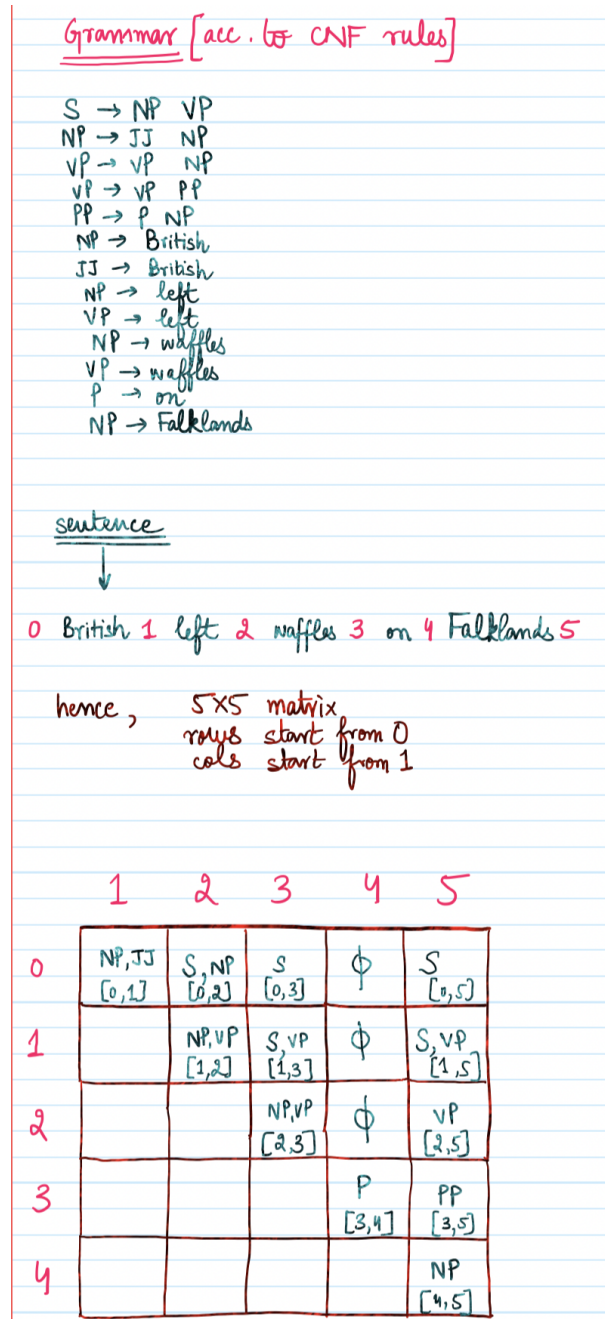 Grammar [acc. to CNF rules]
S → NP VP
NP → JJ NP
VP → VP NP
VP → VP PP
PP → P NP
NP → British
JJ → British
NP → left
VP → left
NP → waffles
VP → waffles
P → on
NP → Falklands
sentence
↓
0 British 1 left 2 waffles 3 on 4 Falklands 5
hence, 5X5 matrix
rows start from 0
cols start from 1
1 2 3 4 5
0 NP,JJ S,NP S ϕ S
[0,1] [0,2] [0,3] [0,5]
1 NP,VP S,VP ϕ S,VP
[1,2] [1,3] [1,5]
2 NP,VP ϕ VP
[2,3] [2,5]
3 P PP
[3,4] [3,5]
4 NP
[4,5]